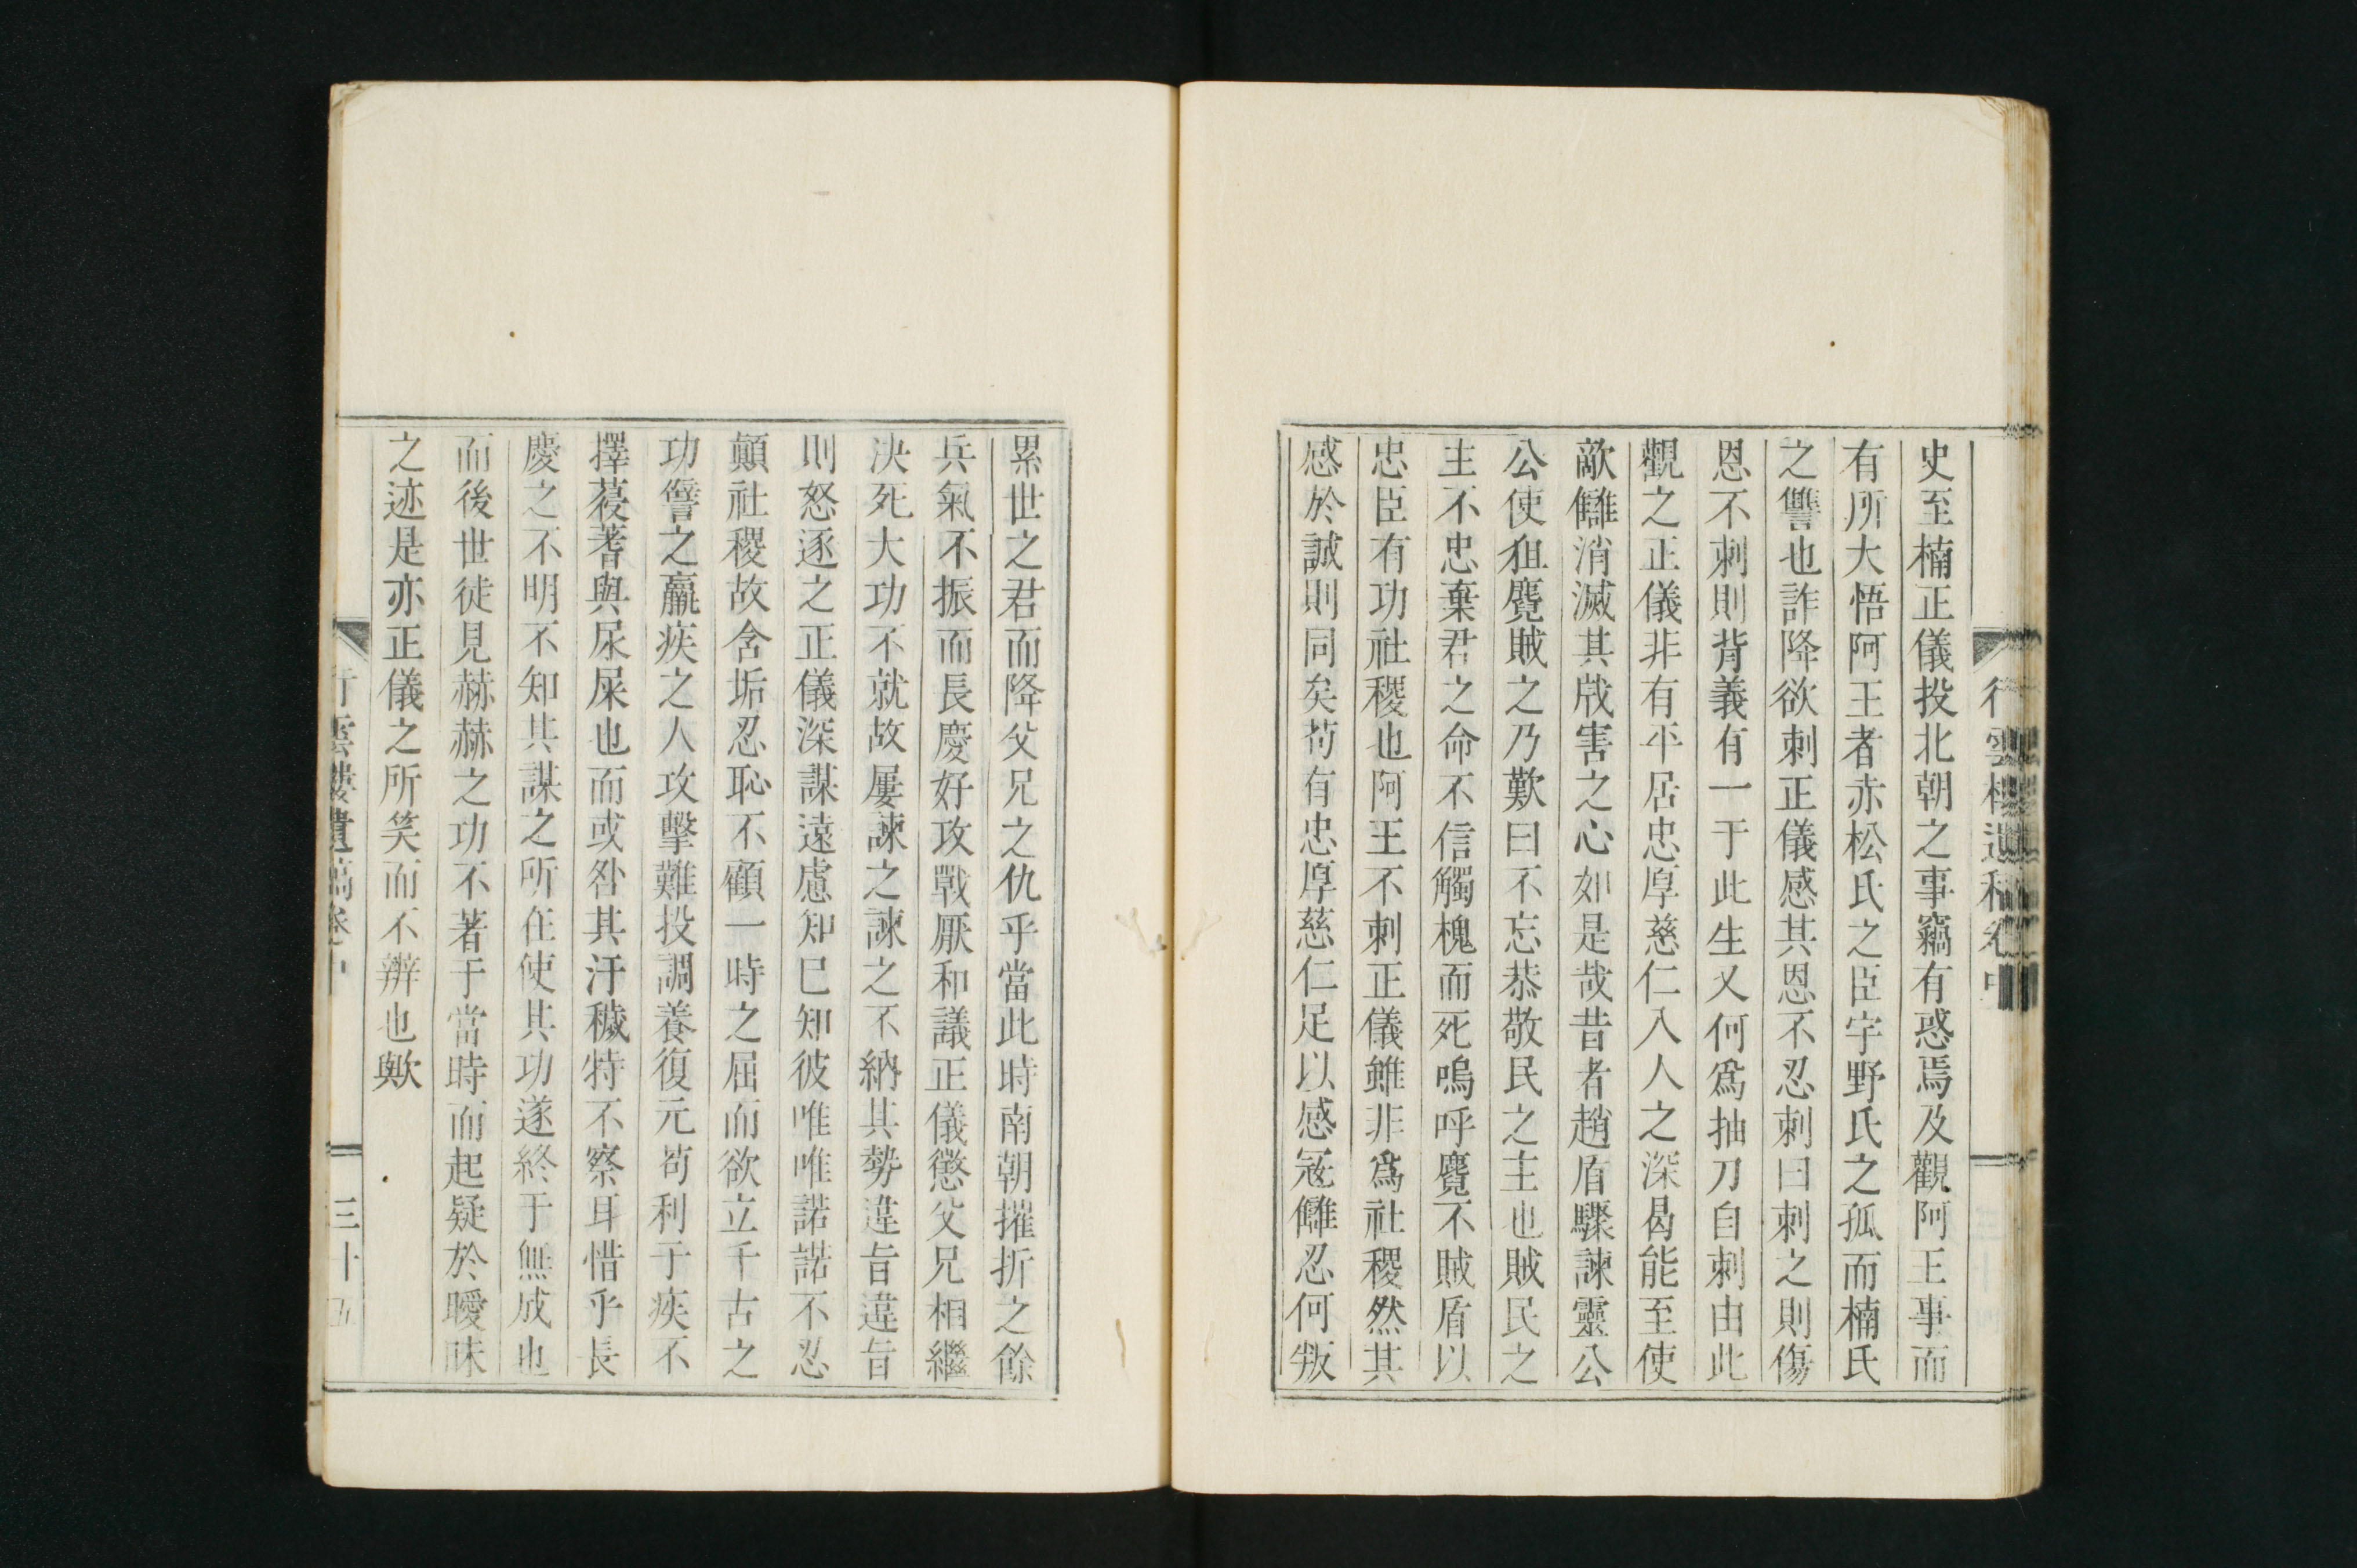 史至楠正儀投北朝之事竊有惑焉及觀阿王事而
有所大悟阿王者赤松氏之臣宇野氏之孤而楠氏
之讐也詐降欲刺正儀感其恩不忍刺曰刺之則傷
恩不刺則背義有一于此生又何爲抽刀自刺由此
觀之正儀非有平居忠厚慈仁入人之深曷能至使
敵讎消滅其戕害之心如是哉昔者趙盾驟諫靈公
公使狙麑賊之乃歎曰不忘恭敬民之主也賊民之
主不忠棄君之命不信觸槐而死嗚呼麑不賊盾以
忠臣有功社稷也阿王不刺正儀雖非爲社稷然其
感於誠則同矣苟有忠厚慈仁足以感冦讎忍何叛
累世之君而降父兄之仇乎當此時南朝摧折之餘
兵氣不振而長慶好攻戰厭和議正儀懲父兄相繼
決死大功不就故屢諫之諫之不納其勢違旨違旨
則怒逐之正儀深謀遠慮知巳知彼唯唯諾諾不忍
顛社稷故含垢忍恥不顧一時之屈而欲立千古之
功譬之羸疾之人攻擊難投調養復元苟利于疾不
擇葠蓍與尿屎也而或咎其汙穢特不察耳惜乎長
慶之不明不知其謀之所在使其功遂終于無成也
而後世徒見赫赫之功不著于當時而起疑於曖昧
之迹是亦正儀之所笑而不辨也歟
行雲樓遺稿卷中
三十五